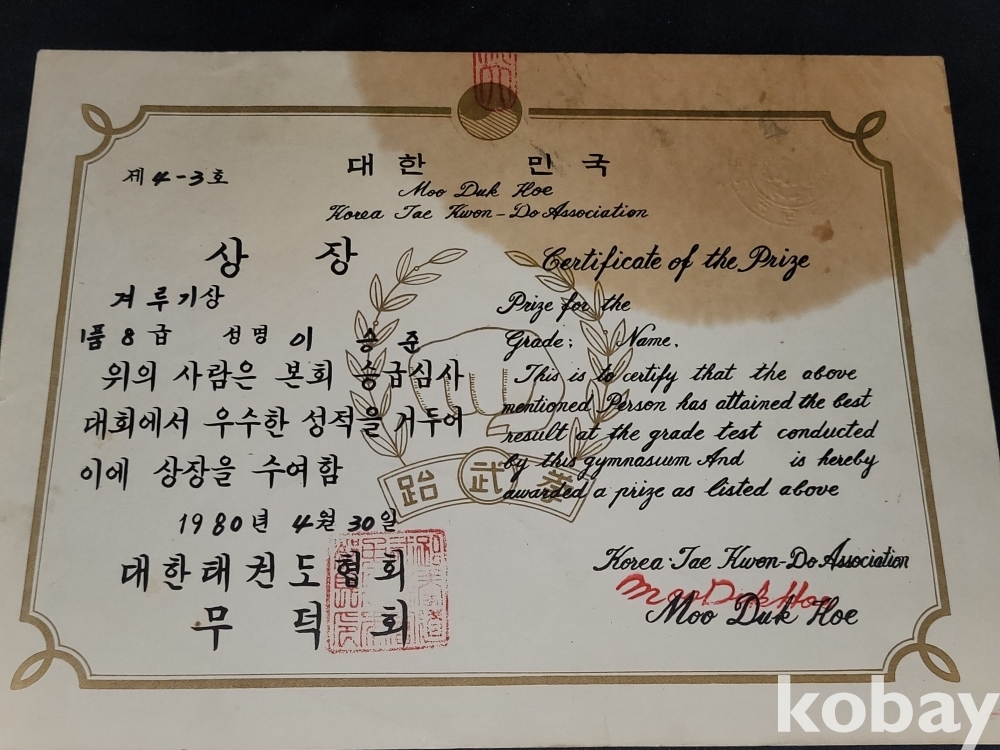 대한 민국
제 4-3호
Moo Duk Hoe
Korea Tae Kwon-Do Association
상 장
겨루기상
1품 8급 성명 이 승 준
위의 사람은 본회 승급심사
대회에서 우수한 성적을 거두어
이에 상장을 수여함
1980년 4월 30일
대한태권도협회
무 덕 회
Certificate of the Prize
Prize for the
Grade; Name,
This is to certify that the above
mentioned Person has attained the best
result at the grade test conducted
by this gymnasium And is hereby
awarded a prize as listed above
Korea Tae Kwon-Do Association
Moo Duk Hoe
Moo Duk Hoe
跆 武 拳
kobay